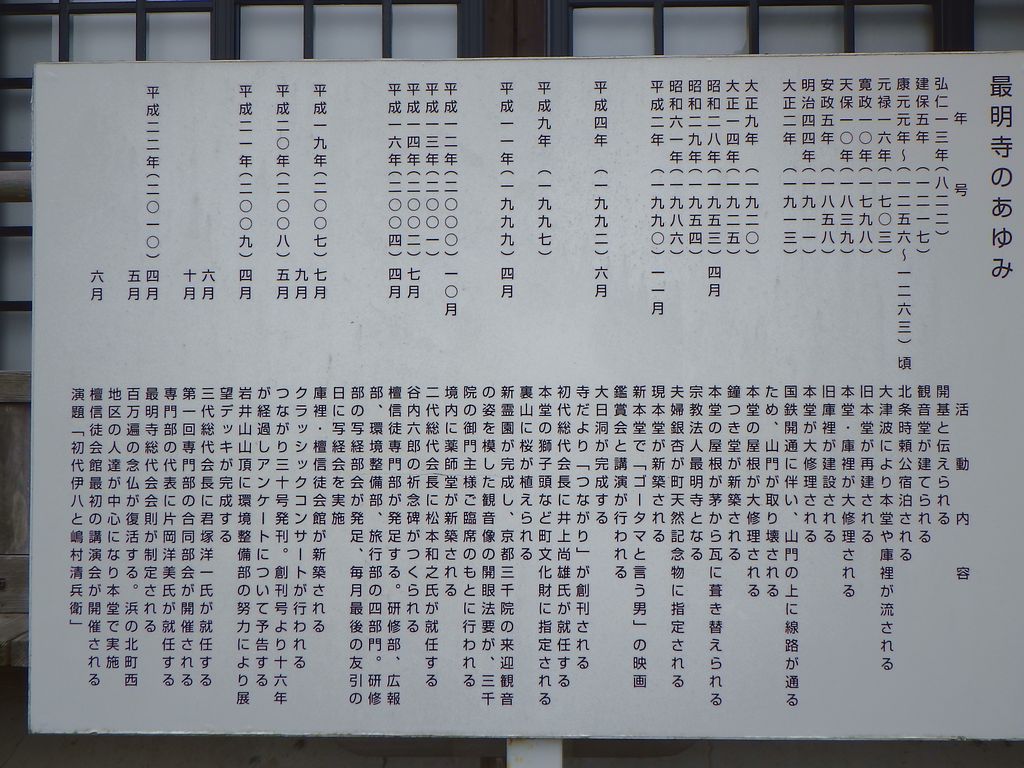 最明寺のあゆみ
年号　活動内容
弘仁一三年(八二二)　開基と伝えられる
建保五年(一二一七)　観音堂が建てられる
康元元年～(一二五六～一二六三)頃　北条時頼公宿泊される
元禄一六年(一七〇三)　大津波により本堂や庫裡が流される
寛政一〇年(一七九八)　旧本堂が再建される
天保一〇年(一八三九)　本堂・庫裡が大修理される
安政五年(一八五八)　旧庫裡が建設される
明治四四年(一九一一)　本堂が大修理される
大正二年(一九一三)　国鉄開通に伴い、山門の上に線路が通る
ため、山門が取り壊される
大正九年(一九二〇)　本堂の屋根が大修理される
大正一四年(一九二五)　鐘つき堂が新築される
昭和二八年(一九五三)四月　本堂の屋根が茅から瓦に葺き替えられる
昭和二九年(一九五四)　宗教法人最明寺となる
昭和六一年(一九八六)　夫婦銀杏が町天然記念物に指定される
平成二年(一九九〇)一一月　現本堂が新築される
新本堂で「ゴータマと言う男」の映画
鑑賞会と講演が行われる
平成四年(一九九二)六月　大日洞が完成する
寺だより「つながり」が創刊される
初代総代会長に井上尚雄氏が就任する
平成九年(一九九七)　本堂の獅子頭など町文化財に指定される
裏山に桜が植えられる
平成一一年(一九九九)四月　新霊園が完成し、京都三千院の来迎観音
の姿を模した観音像の開眼法要が、三千
院の御門主様ご臨席のもとに行われる
平成一二年(二〇〇〇)一〇月　境内に薬師堂が新築される
平成一三年(二〇〇一)　二代総代会長に松本和之氏が就任する
平成一四年(二〇〇二)七月　谷内六郎の祈念碑がつくられる
平成一六年(二〇〇四)四月　檀信徒専門部が発足する。研修部、広報
部、環境整備部、旅行部の四部門。研修
部の写経部会が発足、毎月最後の友引の
日に写経会を実施
平成一九年(二〇〇七)七月　庫裡・檀信徒会館が新築される
九月　クラッシックコンサートが行われる
平成二〇年(二〇〇八)五月　つながり三十号発刊。創刊号より十六年
が経過しアンケートについて予告する
平成二一年(二〇〇九)四月　岩井山山頂に環境整備部の努力により展
望デッキが完成する
六月　三代総代会長に君塚洋一氏が就任する
十月　第一回専門部の合同部会が開催される
専門部の代表に片岡洋美氏が就任する
平成二二年(二〇一〇)四月　最明寺総代会会則が制定される
五月　百万遍の念仏が復活する。浜の北町西
地区の人達が中心になり本堂で実施
六月　檀信徒会館最初の講演会が開催される
演題「初代伊八と嶋村清兵衛」